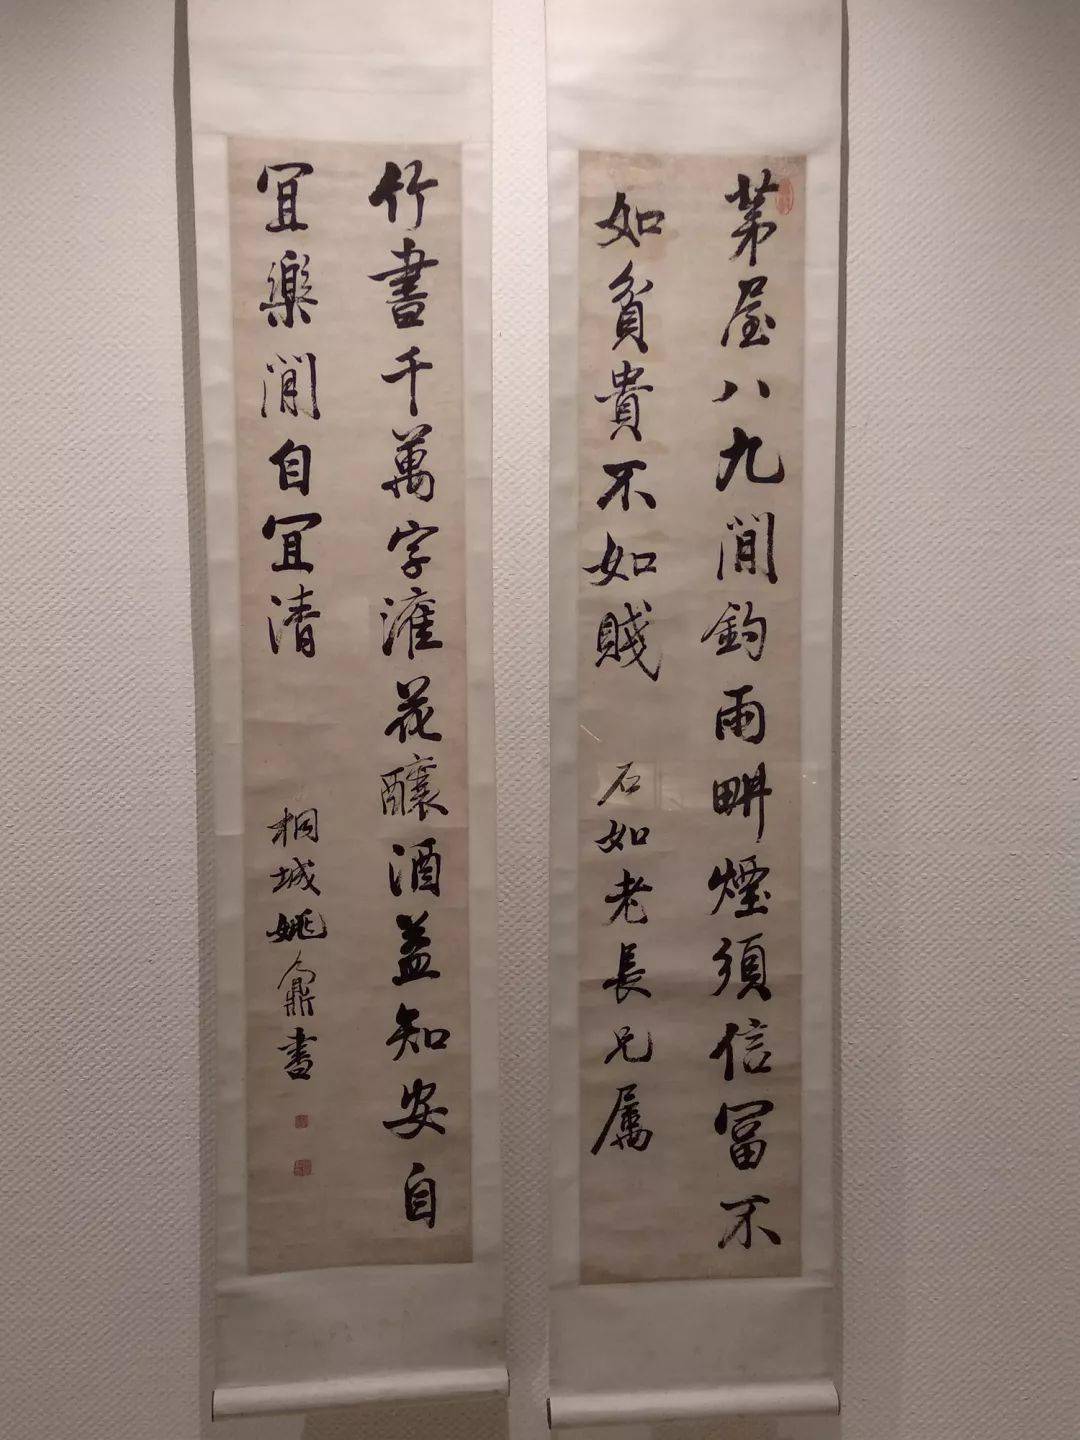 茅屋八九間釣雨畊煙須信冨不
如貧貴不如賤
石如老長兄屬
竹書千萬字灌花釀酒益知安自
冝樂閒自冝清
桐城姚鼐書